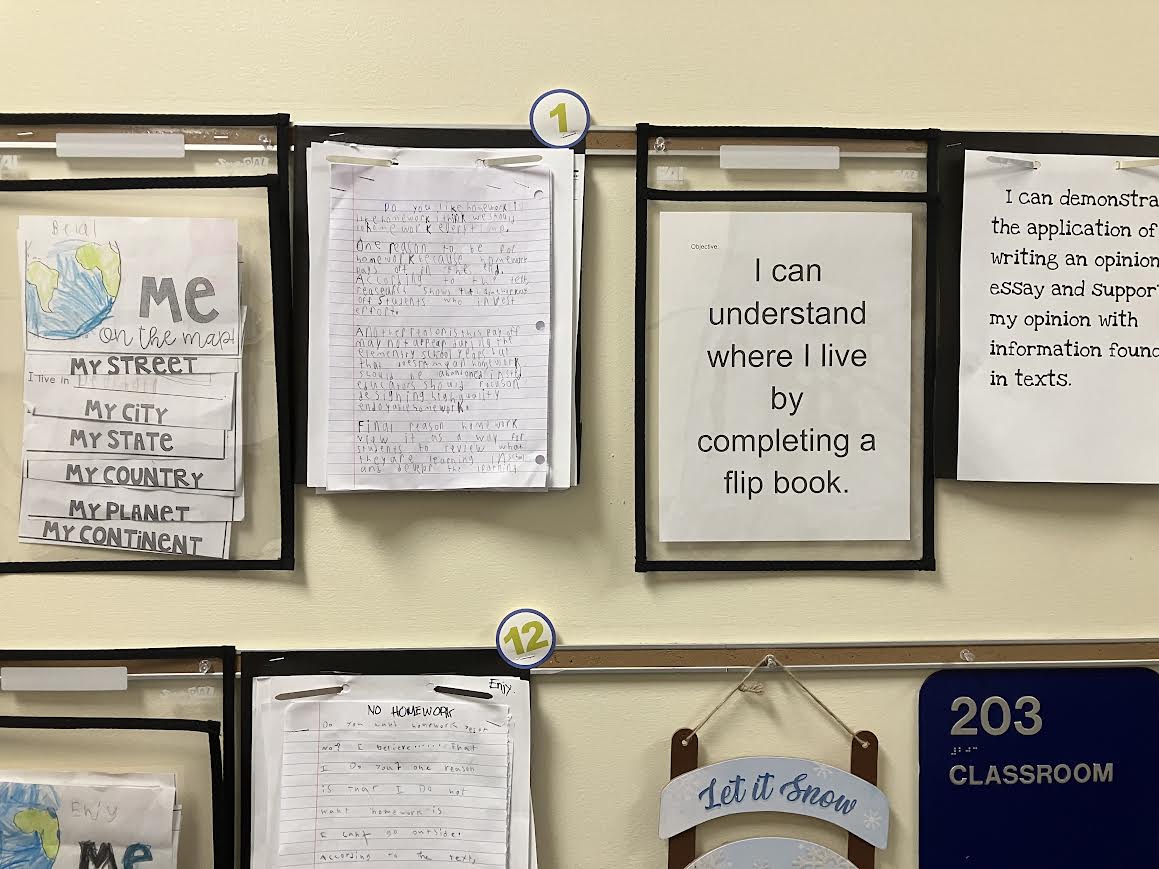 1
Beral
ME
on the map!
MY STREET
I live in
MY CITY
MY STATE
MY COUNTRY
MY PLANET
MY CONTINENT
Do you like homework
I think we should
One reason to be for
homework because homework
pays off in the end.
According to the text
off students who invest
effort.
Another reason is this pay off
may not appear during the
elementry school years but
should be abandoned
educators should
designing high quality
enjoyable homework.
Final reason homework
view it as a way for
students to review what
they are learning
and the learning
Objective:
I can
understand
where I live
by
completing a
flip book.
I can demonstra
the application of
writing an opinion
essay and suppor
my opinion with
information found
in texts.
12
Enjy.
NO HOMEWORK
Do you want homework
no? I believe....... that
I Do you? one reason
is that I Do not
want homework is.
I cant go outside.
According to the text,
Enjy
Me
Let it Snow
203
CLASSROOM